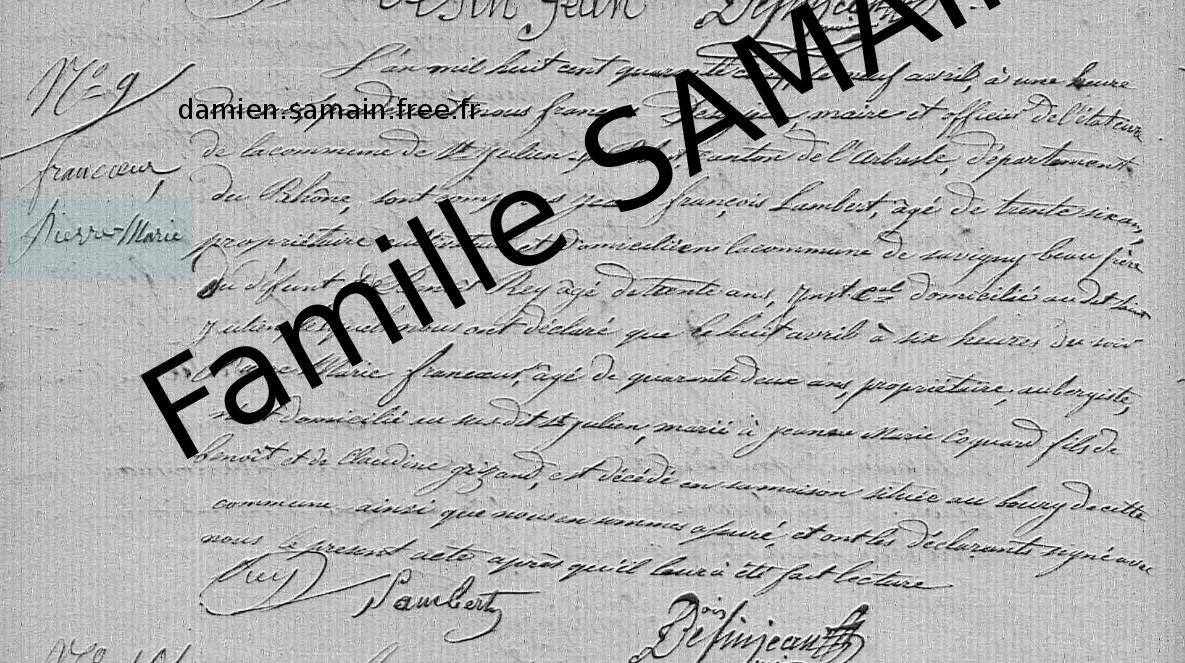 Jean
Desinjean
L'an mil huit cent quarante le neuf avril, à une heure
N° 9
damien.samain.free.fr
nous maire et officier de l'état civil
de la commune de St julien canton de l'Arbresle, département
francoeur
du Rhône, sont françois Lambert, âgé de trente six ans,
Pierre-Marie
propriétaire cultivateur et domicilié en la commune de savigny beau frère
du défunt et Rey âgé de trente ans, domicilié au dit Saint
Julien lesquels nous ont déclaré que le huit avril à six heures du soir
Marie francoeur, âgé de quarante deux ans, propriétaire, aubergiste,
domicilié au susdit St julien, marié à jeanne Marie Coquard fils de
benoît et de Claudine grizand, est décédé en sa maison située au bourg de cette
commune ainsi que nous en sommes assuré, et ont les déclarants signé avec
nous le present acte après qu'il leur a été fait lecture
Rey
Lambert
Desinjean
Famille SAMAIN